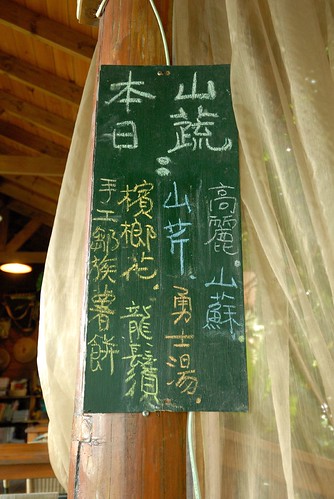 本日山蔬：
高麗 山蘇
山芹 勇士湯
檳榔花 龍鬚
手工鄒族薯餅